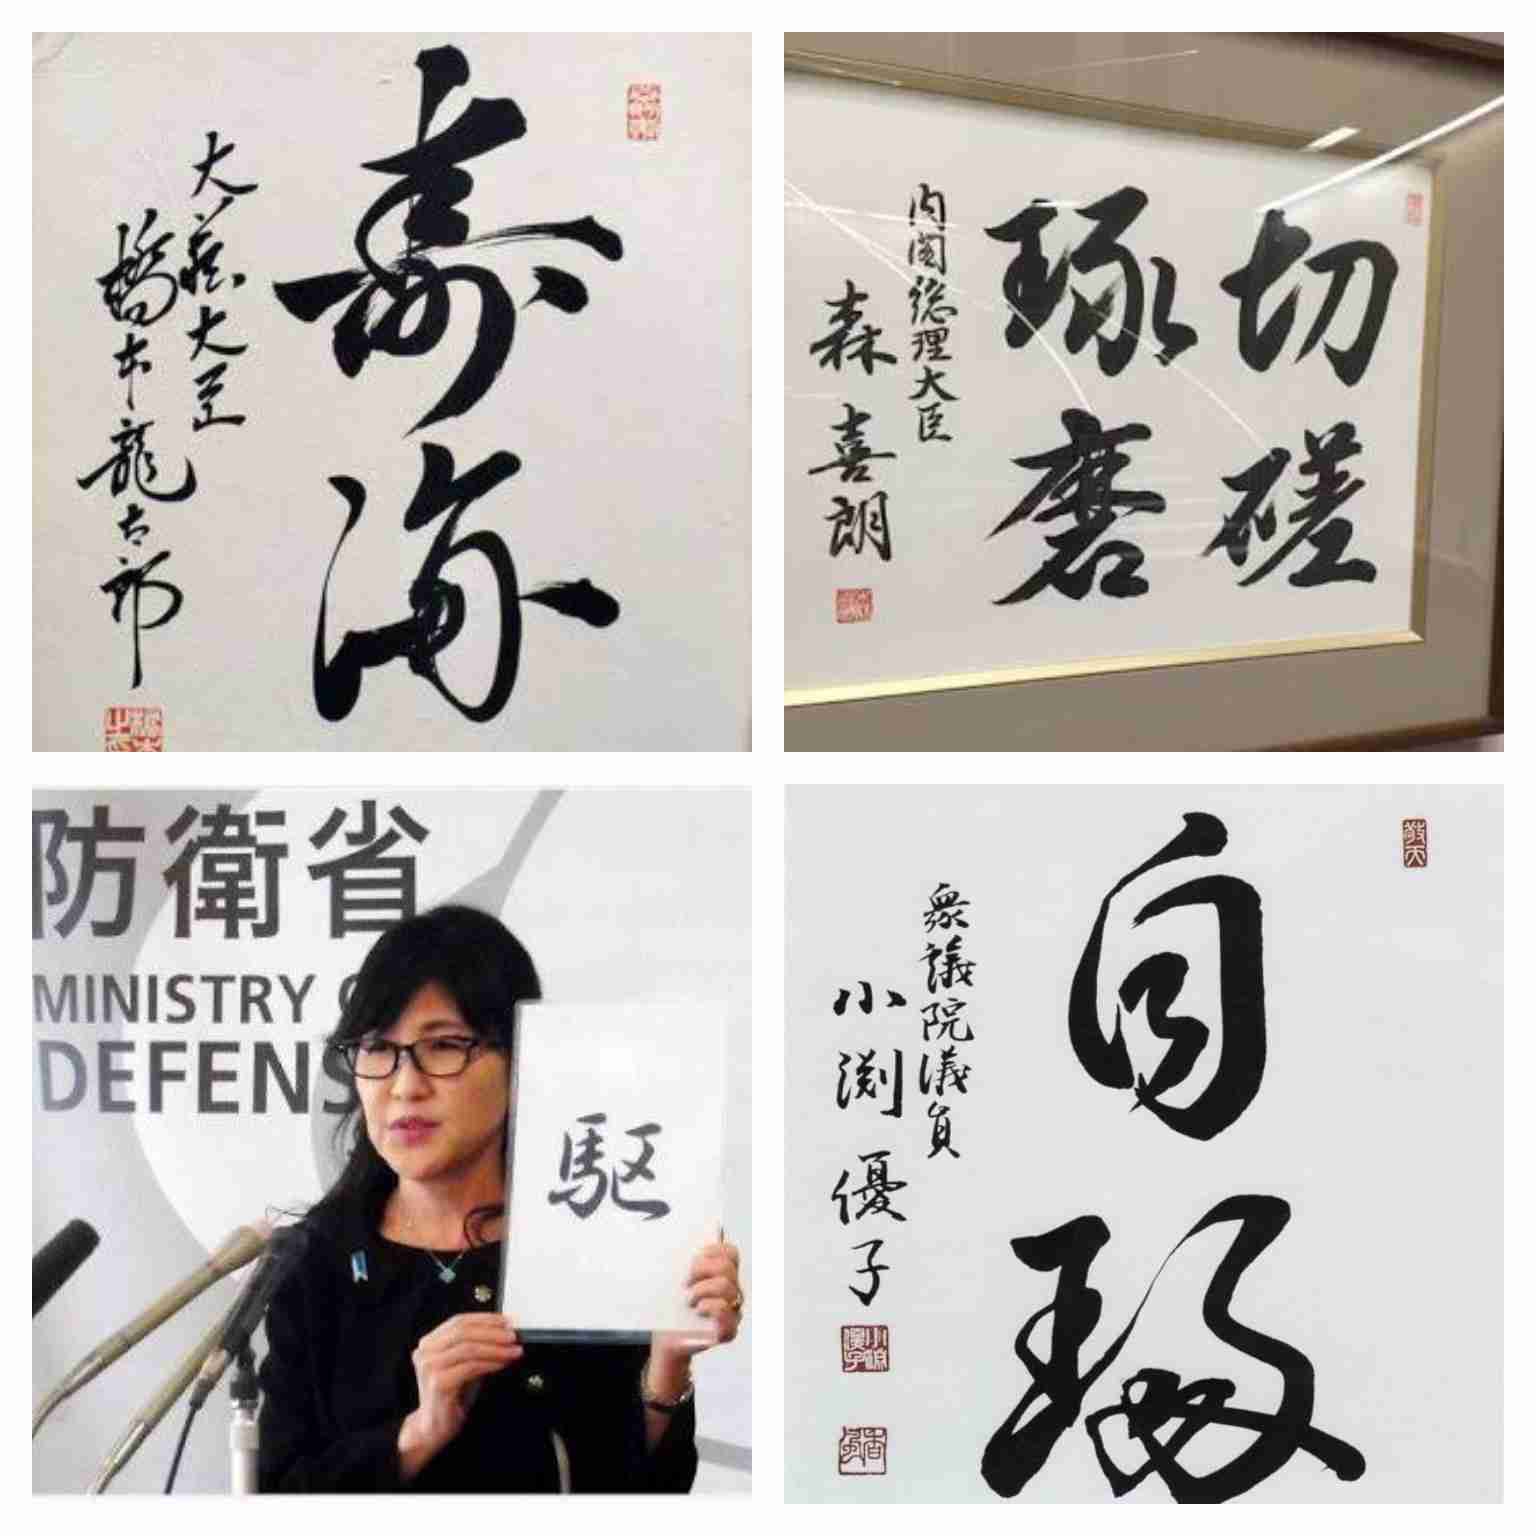 寿海
大蔵大臣
橋本龍太郎
切磋
琢磨
内閣総理大臣
森喜朗
防衛省
MINISTRY
DEFENS
駆
敬天
自
衆議院議員
小渕優子